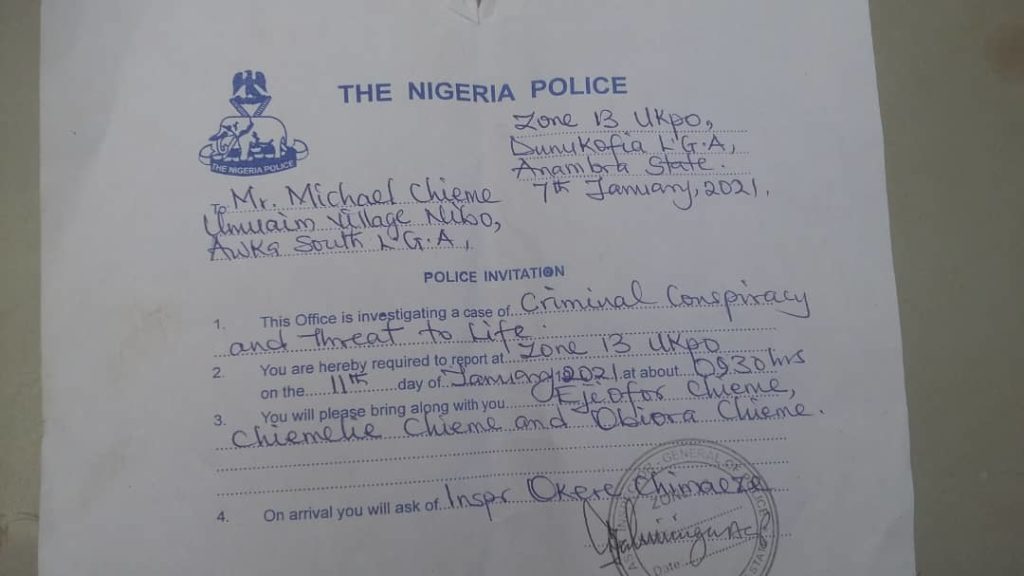 THE NIGERIA POLICE
THE NIGERIA POLICE
Zone 13 Ukpo,
Dunukofia L.G.A,
Anambra State.
7th January, 2021.
To Mr. Michael Chieme
Umuaim Village Nibo,
Awka South L.G.A,
POLICE INVITATION
1. This Office is investigating a case of Criminal Conspiracy
and threat to Life.
2. You are hereby required to report at Zone 13 Ukpo
on the 11th day of January, 2021 at about 0930hrs
3. You will please bring along with you Ejiofor Chieme,
Chiemelie Chieme and Obiora Chieme.
4. On arrival you will ask of Inspr Okere Chimaeze
GENERAL OF
Date